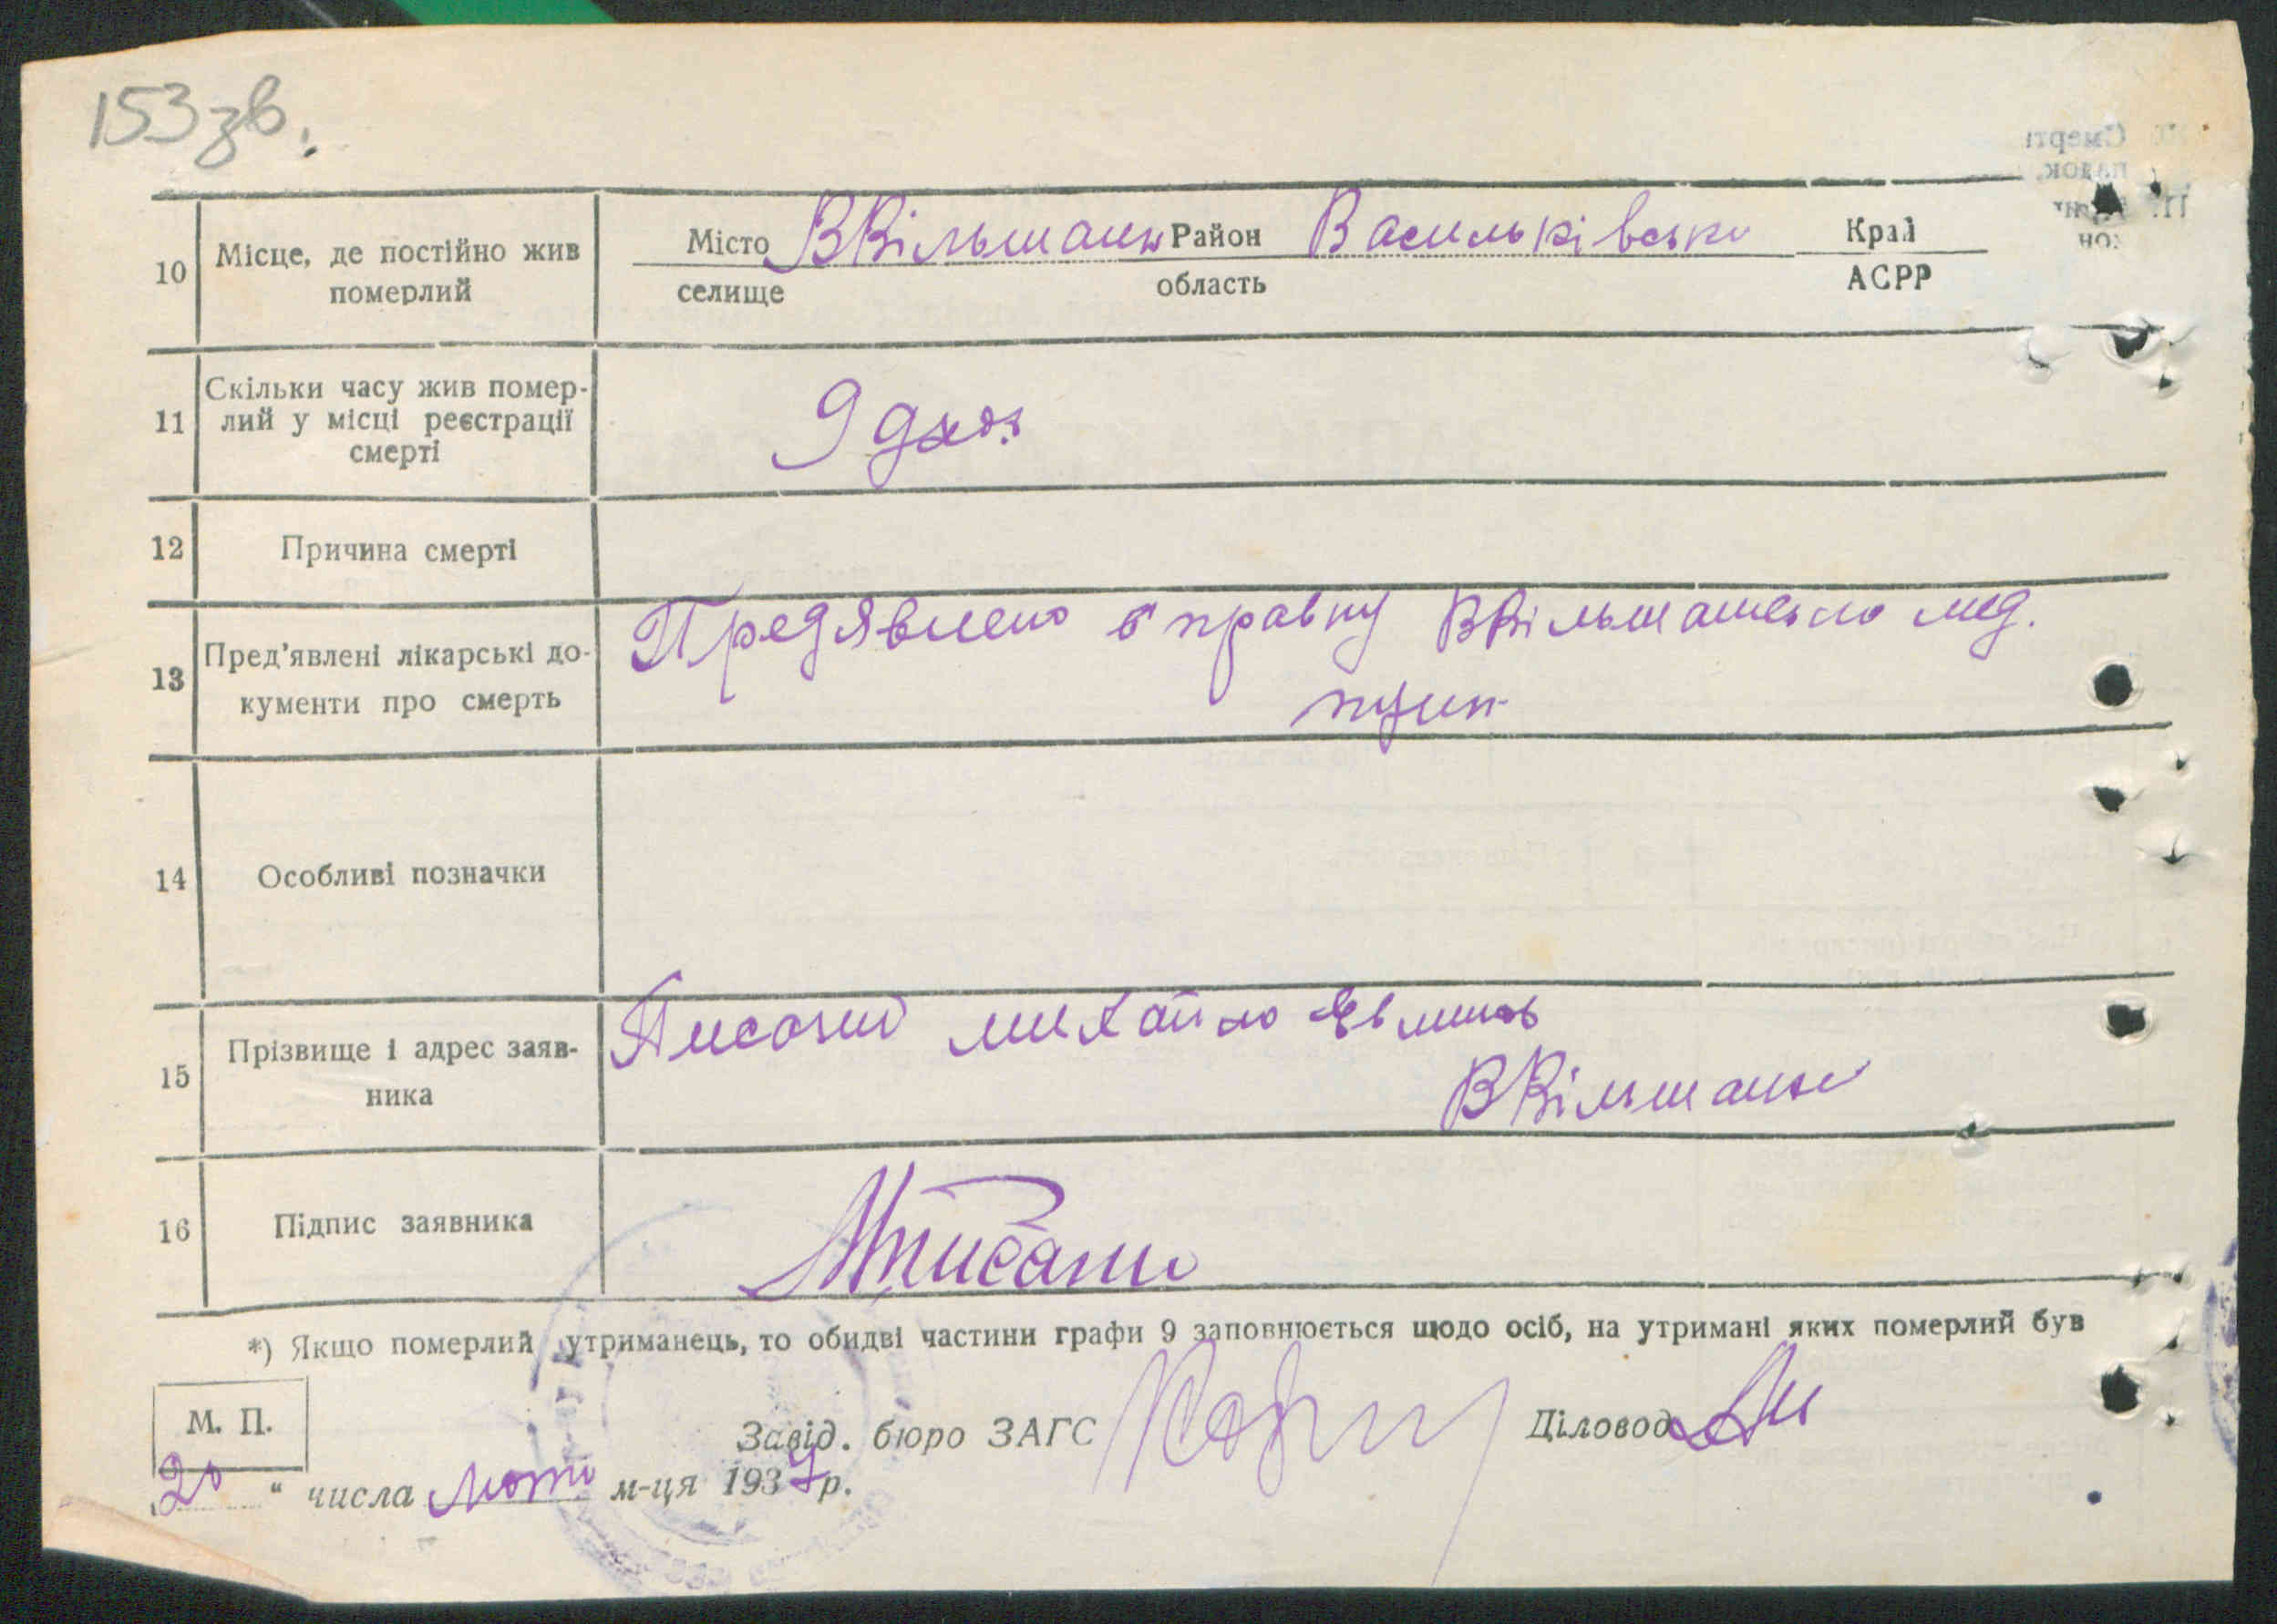 153 зв.
10
Місце, де постійно жив
померлий
Місто ВВільшанк Район Васильківськи Край
селище область АСРР
11
Скільки часу жив помер-
лий у місці реєстрації
смерті
9 дноз
12
Причина смерті
13
Пред'явлені лікарські до-
кументи про смерть
Предявлено справку ВВільшансько мед.
пункт
14
Особливі позначки
15
Прізвище і адрес заяв-
ника
Писани михайло
ВВільшанки
16
Підпис заявника
МПисани
*) Якщо померлий утриманець, то обидві частини графи 9 заповнюється щодо осіб, на утримані яких померлий був
М. П.
Завід. бюро ЗАГС
Діловод
20 " числа люто м-ця 1939 р.